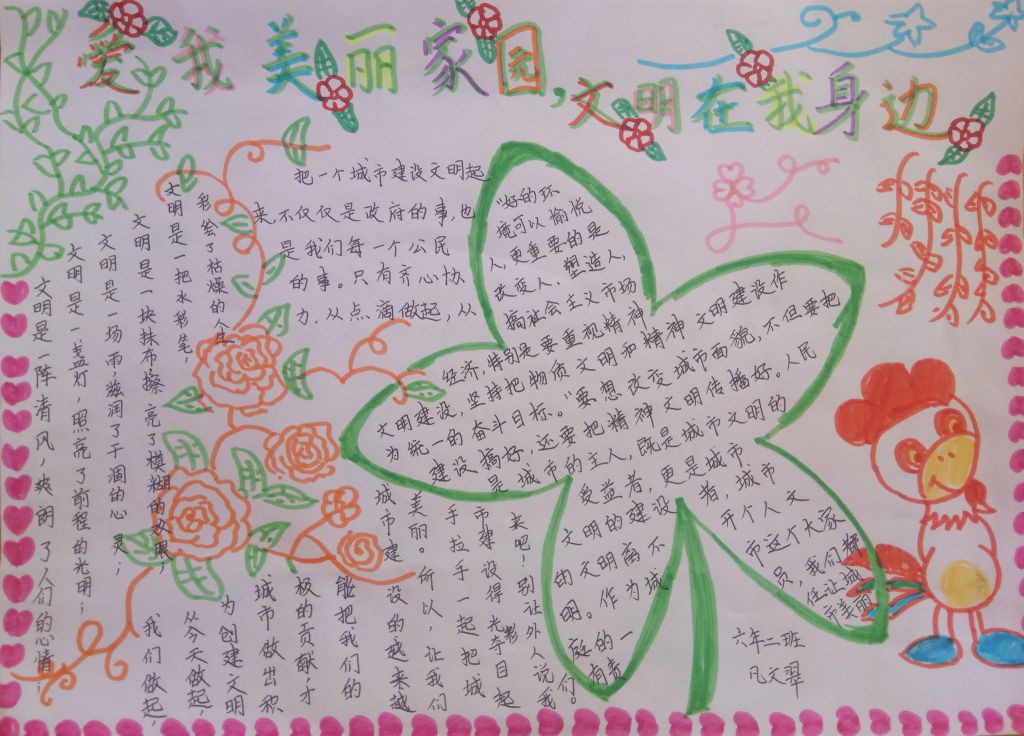 爱我美丽家园，
文明在我身边
把一个城市建设文明起
来不仅仅是政府的事，也
是我们每一个公民
的事。只有齐心协
力，从点滴做起，从
文明是一阵清风，爽朗了人们的心情；
文明是一盏灯，照亮了前程的光明；
文明是一场雨，滋润了干涸的心灵；
文明是一块抹布，擦亮了模糊的双眼；
文明是一把水彩笔，
彩绘了枯燥的人生
我们做起，
从今天做起，
为创建文明
城市做出积
极的贡献，才
能把我们的
城市建设的越来越
美丽。所以，让我们
手拉手一起把城
市建设得光彩夺目起
来吧！别让外人说我们。
"好的环
境可以愉悦
人，更重要的是
改变人，塑造人，
搞社会主义市场
经济，特别是要重视精神
文明建设，坚持把物质文明和精神文明建设作
为统一的奋斗目标。"要想改变城市面貌，不但要把
建设搞好，还要把精神文明传播好。人民
是城市的主人，既是城市文明的
受益者，更是城市
文明的建设者，城市
的文明离不开个人文
明。作为城市这个大家
庭的一员，我们都
有责任让城
市美丽
六年二班
凡文翠